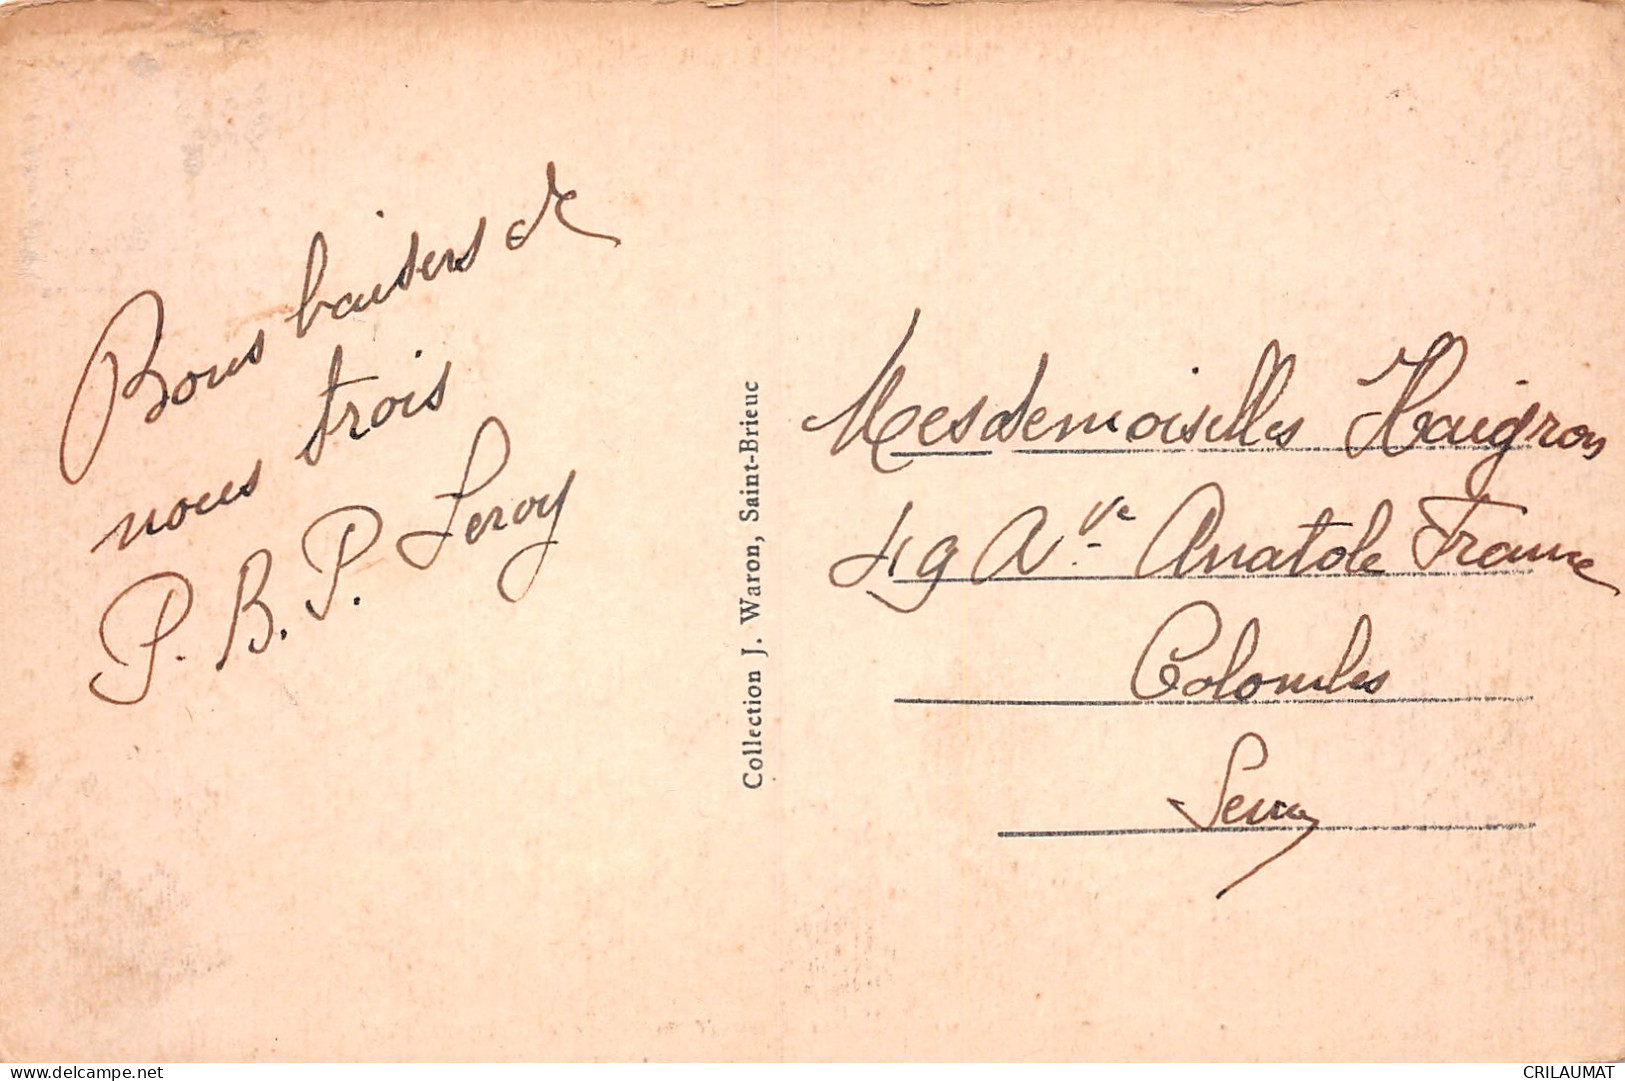 Bons baisers de
nous trois
P. B. P. Leroy
Collection J. Waron, Saint-Brieuc
Mesdemoiselles Haigron
49 Ave Anatole France
Colombes
Seine
www.delcampe.net
CRILAUMAT